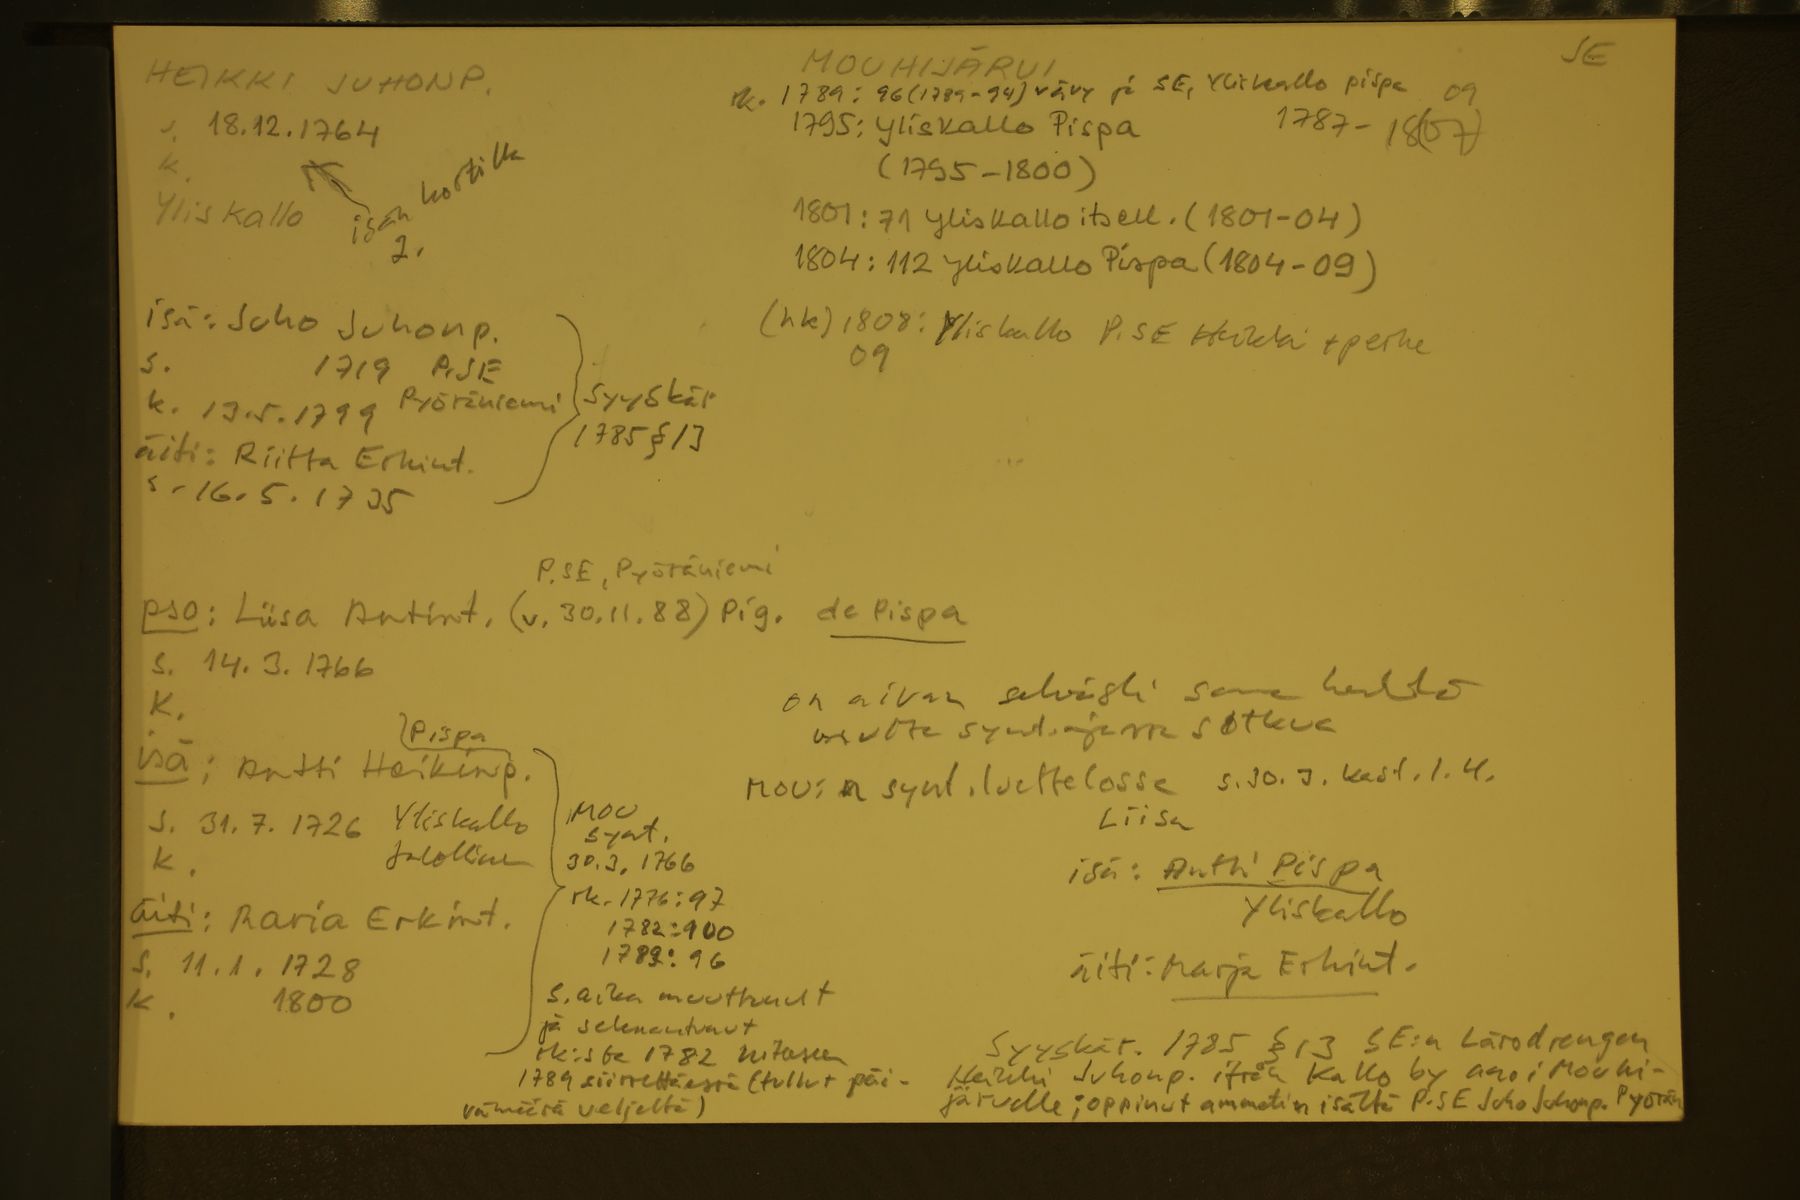 SE
HEIKKI JUHONP.
s. 18.12.1764
k.
Yliskallo
isän kortilla
MOUHIJÄRVI
rk. 1789: 96 (1789-94) vävy ja SE, Yliskallo pispa 09
1795: Yliskallo Pispa 1787-18(07)
(1795-1800)
1801: 71 Yliskallo itsell. (1801-04)
1804: 112 Yliskallo Pispa (1804-09)
(hk) 1808: Yliskallo P.SE Heikki + perhe
09
isä: Juho Juhonp.
s. 1719 P.SE
k. 13.5.1799 Pyöräniemi
äiti: Riitta Erkint.
s. 16.5.1735
Syyskär
1785 § 13
P.SE, Pyöräniemi
pso: Liisa Antint. (v. 30.11.88) Pig. de Pispa
s. 14.3.1766
k.
Pispa
isä: Antti Heikinp.
s. 31.7.1726 Yliskallo
k. talollinen
äiti: Maria Erkint.
s. 11.1.1728
k. 1800
MOU
synt.
30.3.1766
rk. 1776: 97
1782: 900
1789: 96
s.aika muuttunut
ja selkeentunut
rk:sta 1782
1789 siirrettäessä (tullut päi-
vämäärä veljeltä)
on aivan selvästi sama henkilö
mutta synt.ajassa sotkua
MOU:n synt.luettelossa s.30.3. kast.1.4.
Liisa
isä: Antti Pispa
Yliskallo
äiti: Marja Erkint.
Syyskär. 1785 § 13 SE:n Lärodrengen
Heikki Juhonp. ifrån Kallo by aao i Mouhi-
järvelle; oppinut ammatin isältä P.SE Juho Juhonp. Pyörän